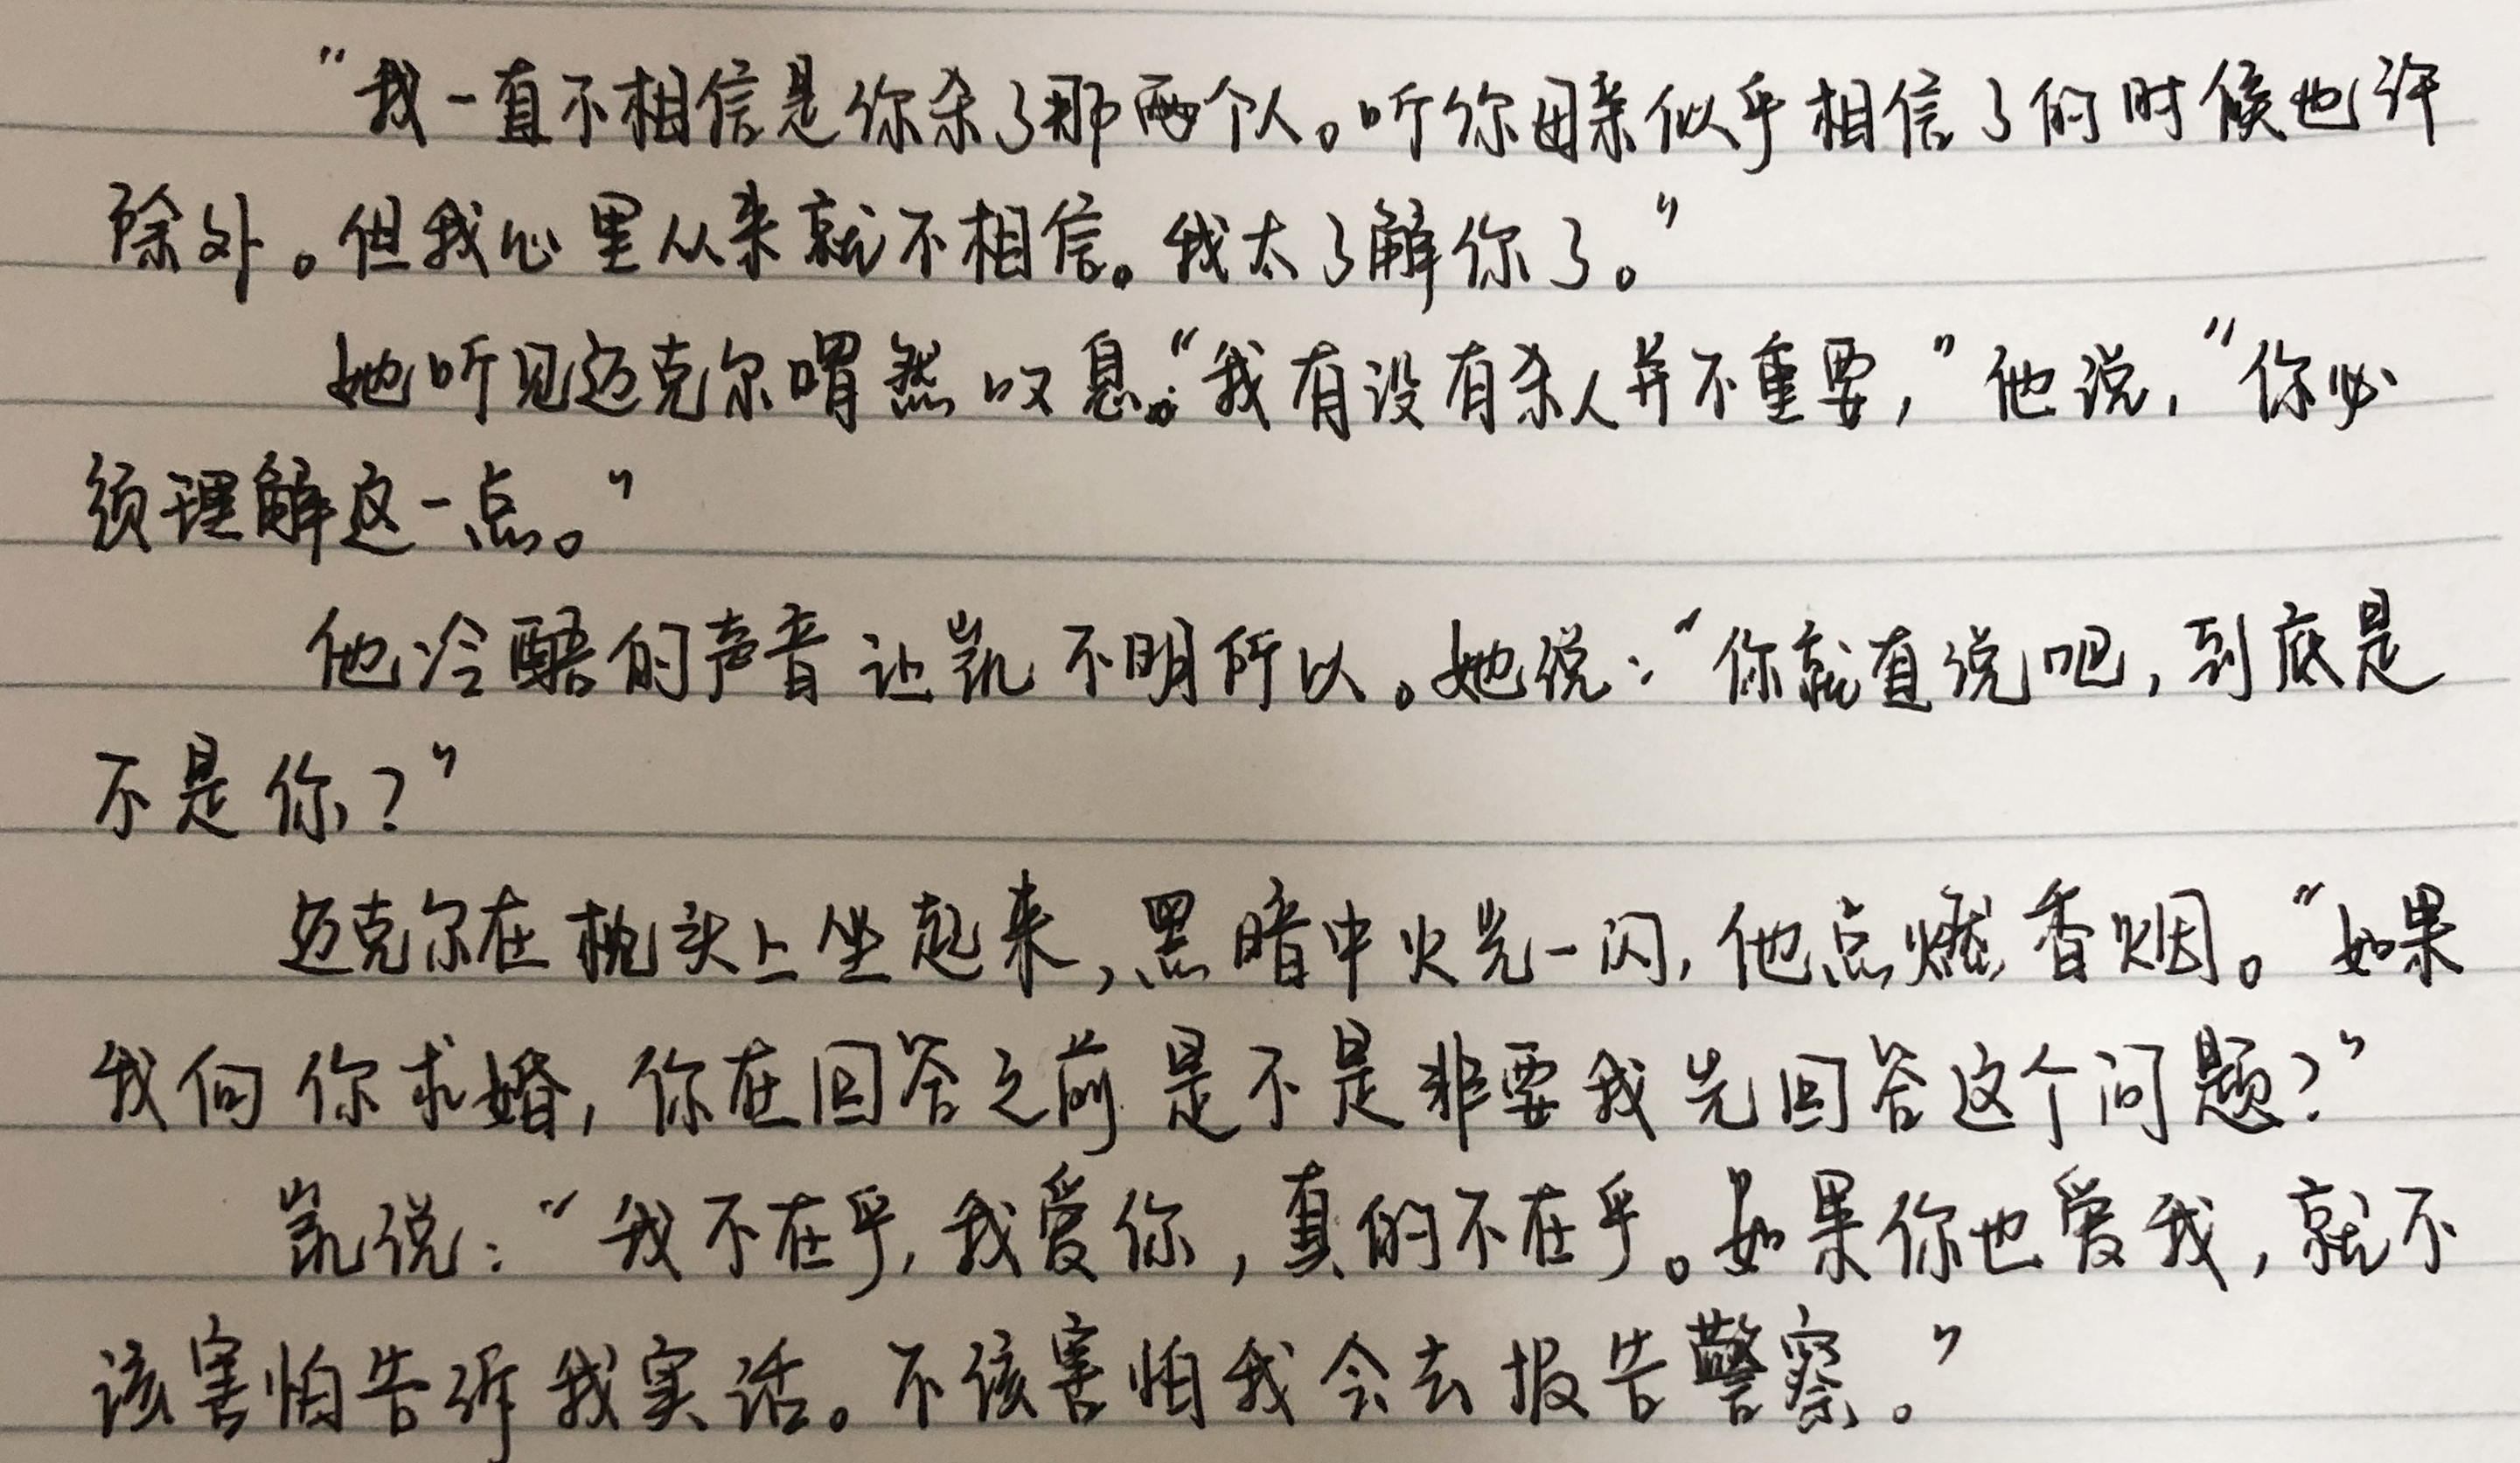 “我一直不相信是你杀了那两个人。听你母亲似乎相信了的时候也许
除外。但我心里从来就不相信。我太了解你了。”
她听见迈克尔喟然叹息。“我有没有杀人并不重要，”他说，“你必
须理解这一点。”
他冷酷的声音让凯不明所以。她说：“你就直说吧，到底是
不是你？”
迈克尔在枕头上坐起来，黑暗中火光一闪，他点燃香烟。“如果
我向你求婚，你在回答之前是不是非要我先回答这个问题？”
凯说：“我不在乎，我爱你，真的不在乎。如果你也爱我，就不
该害怕告诉我实话。不该害怕我会去报告警察。”